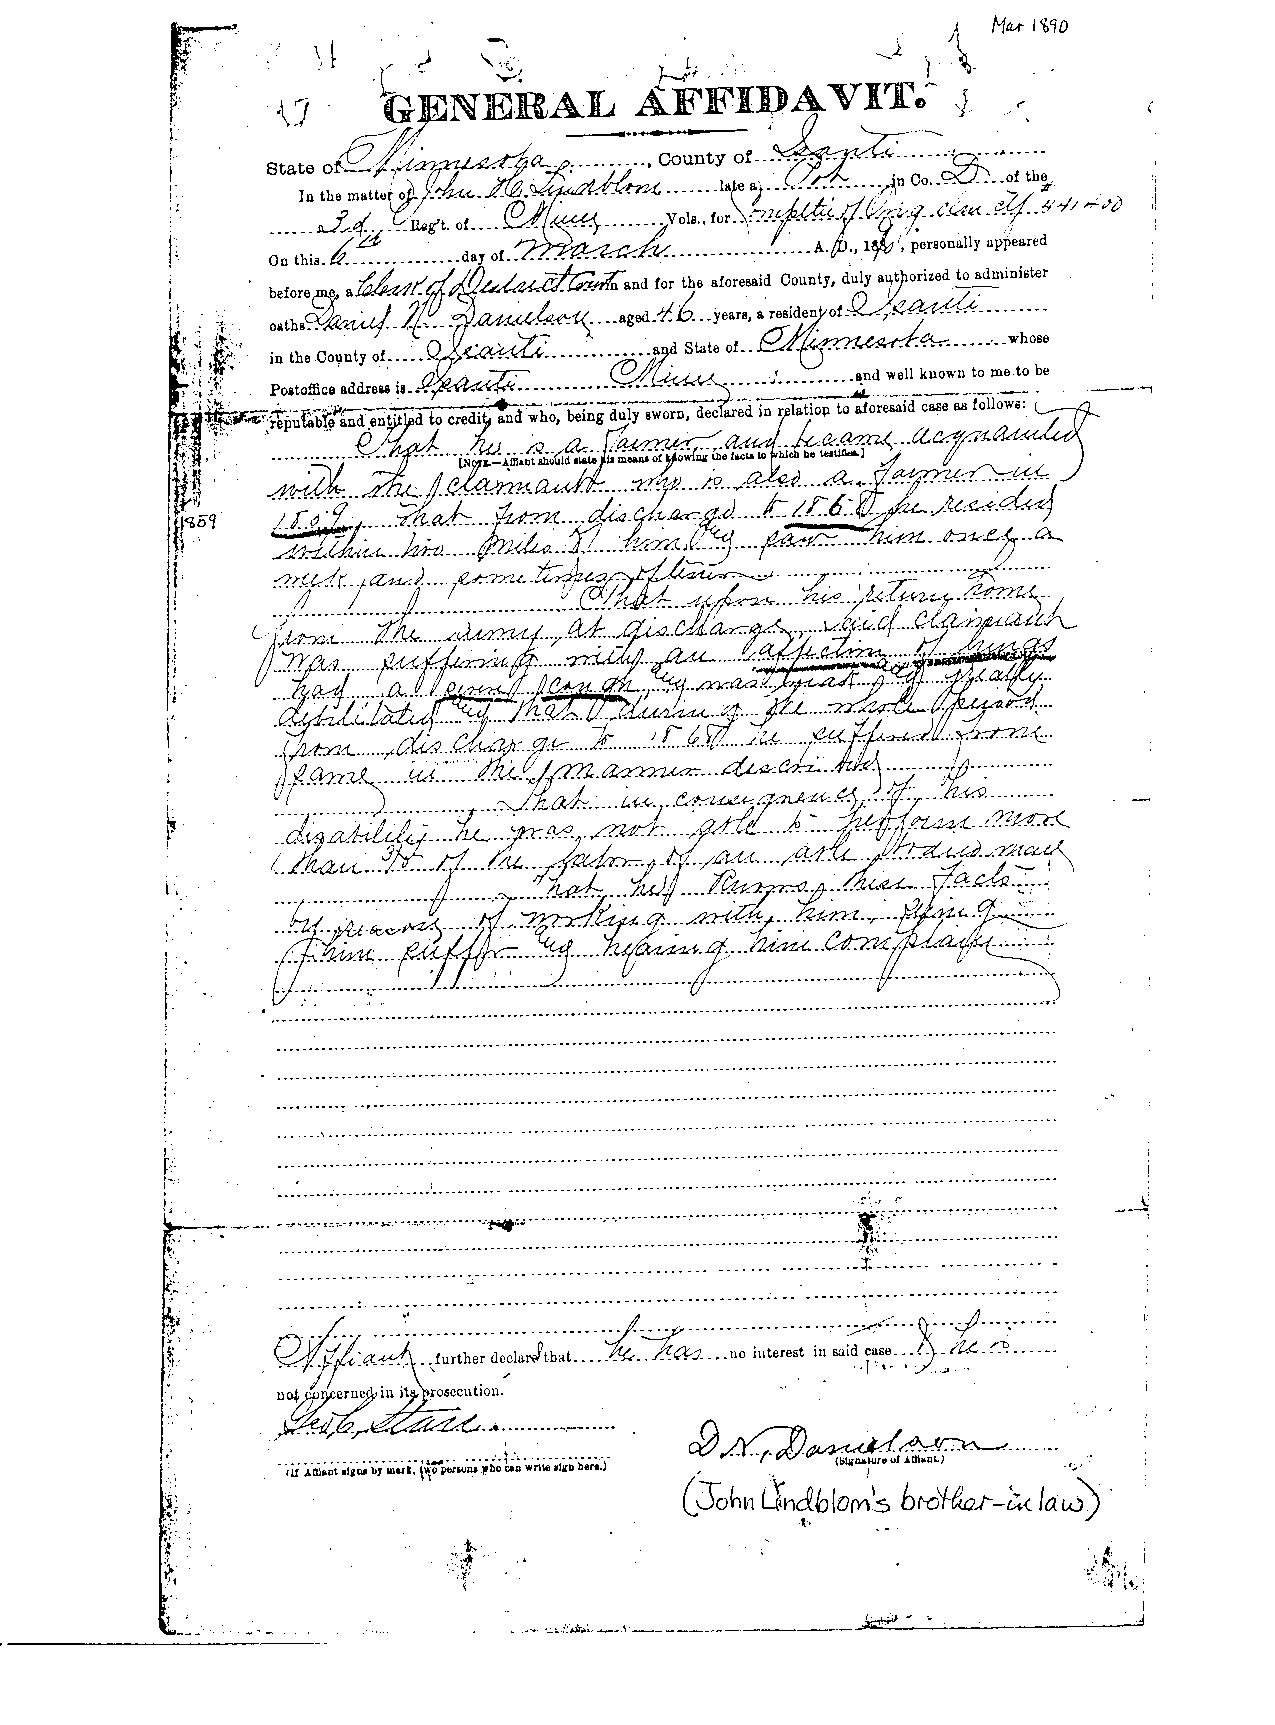 Mar 1890
GENERAL AFFIDAVIT.
State of Minnesota, County of Isanti
In the matter of John H. Lindblom late a Pvt in Co. D of the
3d Reg't. of Minn Vols., for Completion of Orig clm ctf #441400
On this 6th day of March A. D., 1890, personally appeared
before me, a Clerk of District Court in and for the aforesaid County, duly authorized to administer
oaths Daniel N. Danielson aged 46 years, a resident of Isanti
in the County of Isanti and State of Minnesota whose
Postoffice address is Isanti Minn and well known to me to be
reputable and entitled to credit, and who, being duly sworn, declared in relation to aforesaid case as follows:
That he is a farmer and became acquainted
[NOTE.—Affiant should state his means of knowing the facts to which he testifies.]
with the claimant who is also a farmer in
1859
1859, that from discharge to 1868 he resided
within two miles of him & saw him once a
week and sometimes oftener
That upon his return home
from the army at discharge, said claimant
was suffering with an affection of lungs
had a severe cough & was weak and greatly
debilitated & that during the whole period
from discharge to 1868 he suffered from
same in the manner described
That in consequence of his
disability he was not able to perform more
than of the labor of an able bodied man
That he knows these facts
by reason of working with him, seeing
him suffer & hearing him complain
Affiant further declares that he has no interest in said case & he is
not concerned in its prosecution.
Geo C. Starr.
(If Affiant signs by mark, two persons who can write sign here.)
D. N. Danielson
(Signature of Affiant.)
(John Lindblom's brother-in law)